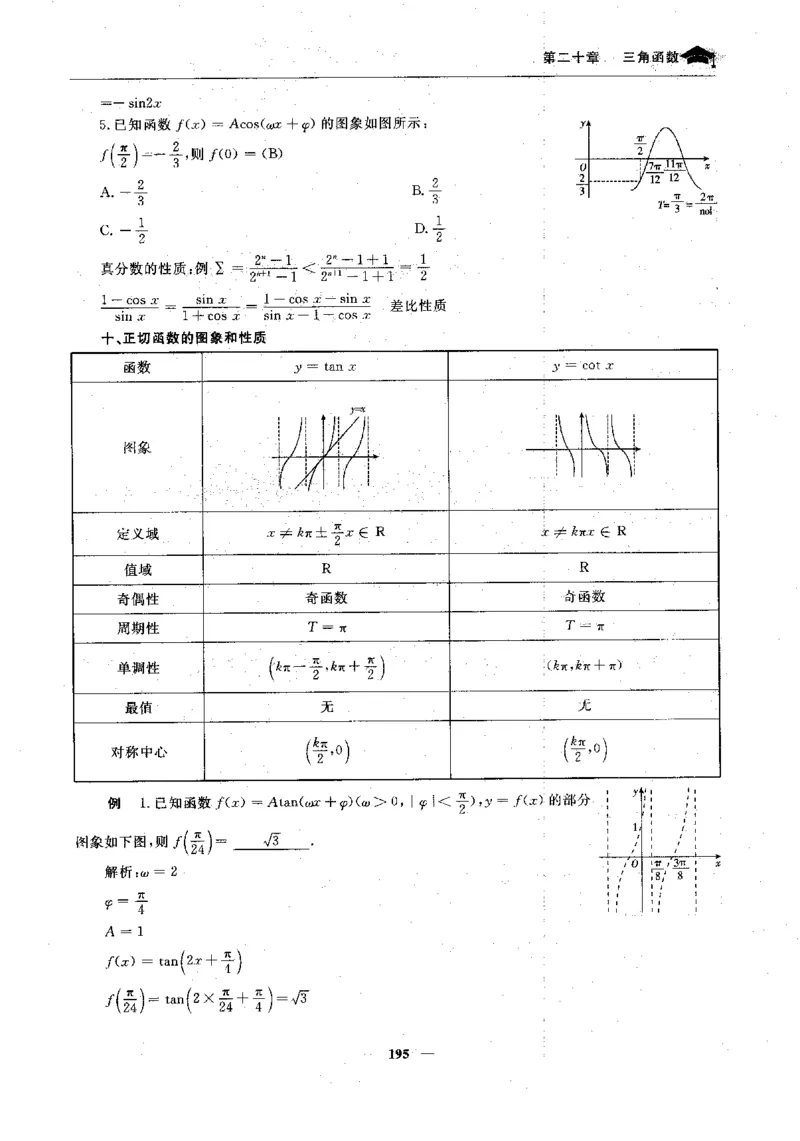 第二十章 三角函数
=- sin2x
5.已知函数 f(x) = Acos(ωx + φ) 的图象如图所示:
f(π/2) = - 2/3,则 f(0) = (B)
A. - 2/3 B. 2/3
C. - 1/2 D. 1/2
y π/2 0 7π/12 11π/12 x 2/3
T= π/3 = 2π/nol
真分数的性质:例 Σ = (2ⁿ - 1)/(2ⁿ⁺¹ - 1) < (2ⁿ - 1 + 1)/(2ⁿ⁺¹ - 1 + 1) = 1/2
(1 - cos x)/(sin x) = (sin x)/(1 + cos x) = (1 - cos x - sin x)/(sin x - 1 - cos x) 差比性质
十、正切函数的图象和性质
函数 y = tan x y = cot x
图象 y=x
定义域 x ≠ kπ ± π/2 x ∈ R x ≠ kπx ∈ R
值域 R R
奇偶性 奇函数 奇函数
周期性 T = π T = π
单调性 (kπ - π/2, kπ + π/2) (kπ,kπ + π)
最值 无 无
对称中心 (kπ/2,0) (kπ/2,0)
例 1.已知函数 f(x) = Atan(ωx + φ)(ω > 0,| φ |< π/2),y = f(x) 的部分
图象如下图,则 f(π/24) = √3 .
y 1 O π/8 3π/8 x
解析:ω = 2
φ = π/4
A = 1
f(x) = tan(2x + π/4)
f(π/24) = tan(2 × π/24 + π/4) = √3
195 —